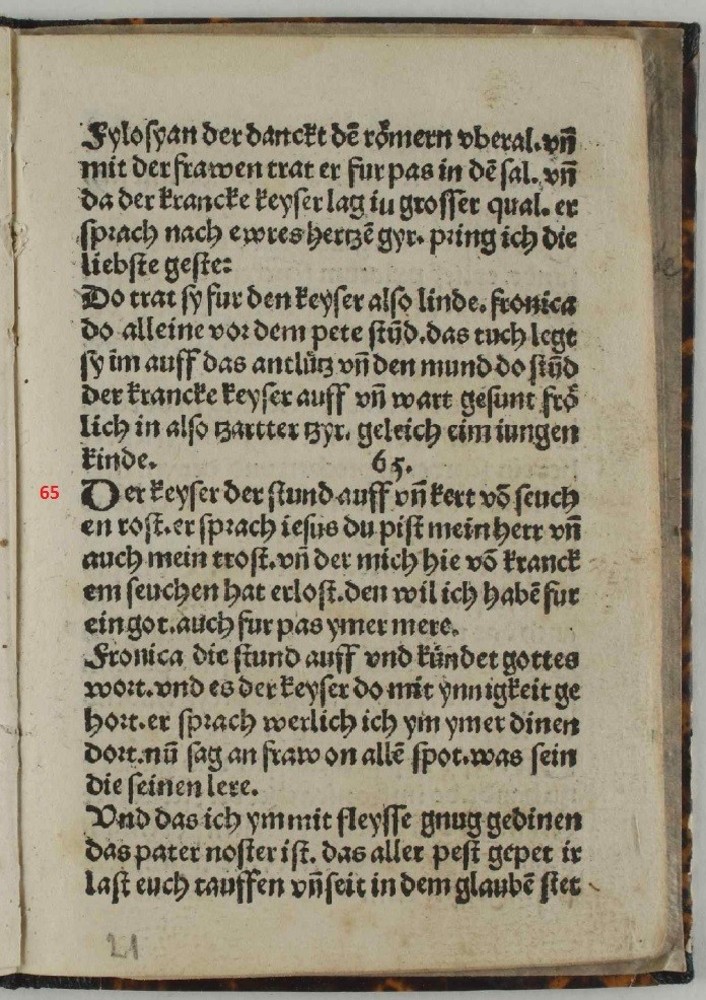 Fylosyan der danckt dē rȍmern vberal. vñ
mit der frawen trat er fur pas in dē sal. vñ
da der krancke keyser lag iu grosser qual. er
sprach nach ewres hertzē gyr. pring ich die
liebste geste:
Do trat sy fur den keyser also linde. fronica
do alleine vor dem pete stūd. das tuch legt
sy im auff das antlütz vñ den mund do stūd
der krancke keyser auff vñ wart gesunt frö
lich in also tzartter tzyr. geleich eim iungen
kinde. 65.
65 Der keyser der stund auff vñ kert vō seuch
en rost. er sprach iesus du pist mein herr vñ
auch mein trost. vñ der mich hie vō kranck
em seuchen hat erlost. den wil ich habē fur
ein got. auch fur pas ymer mere.
Fronica die stund auff vnd kündet gottes
wort. vnd es der keyser do mit ynnigkeit ge
hort. er sprach werlich ich ym ymer dinen
dort. nū sag an fraw on allē spot. was sein
die seinen lere.
Vnd das ich ym mit fleysse gnug gedinen
das pater noster ist. das aller pest gepet ir
last euch tauffen vñ seit in dem glaubē stet
21